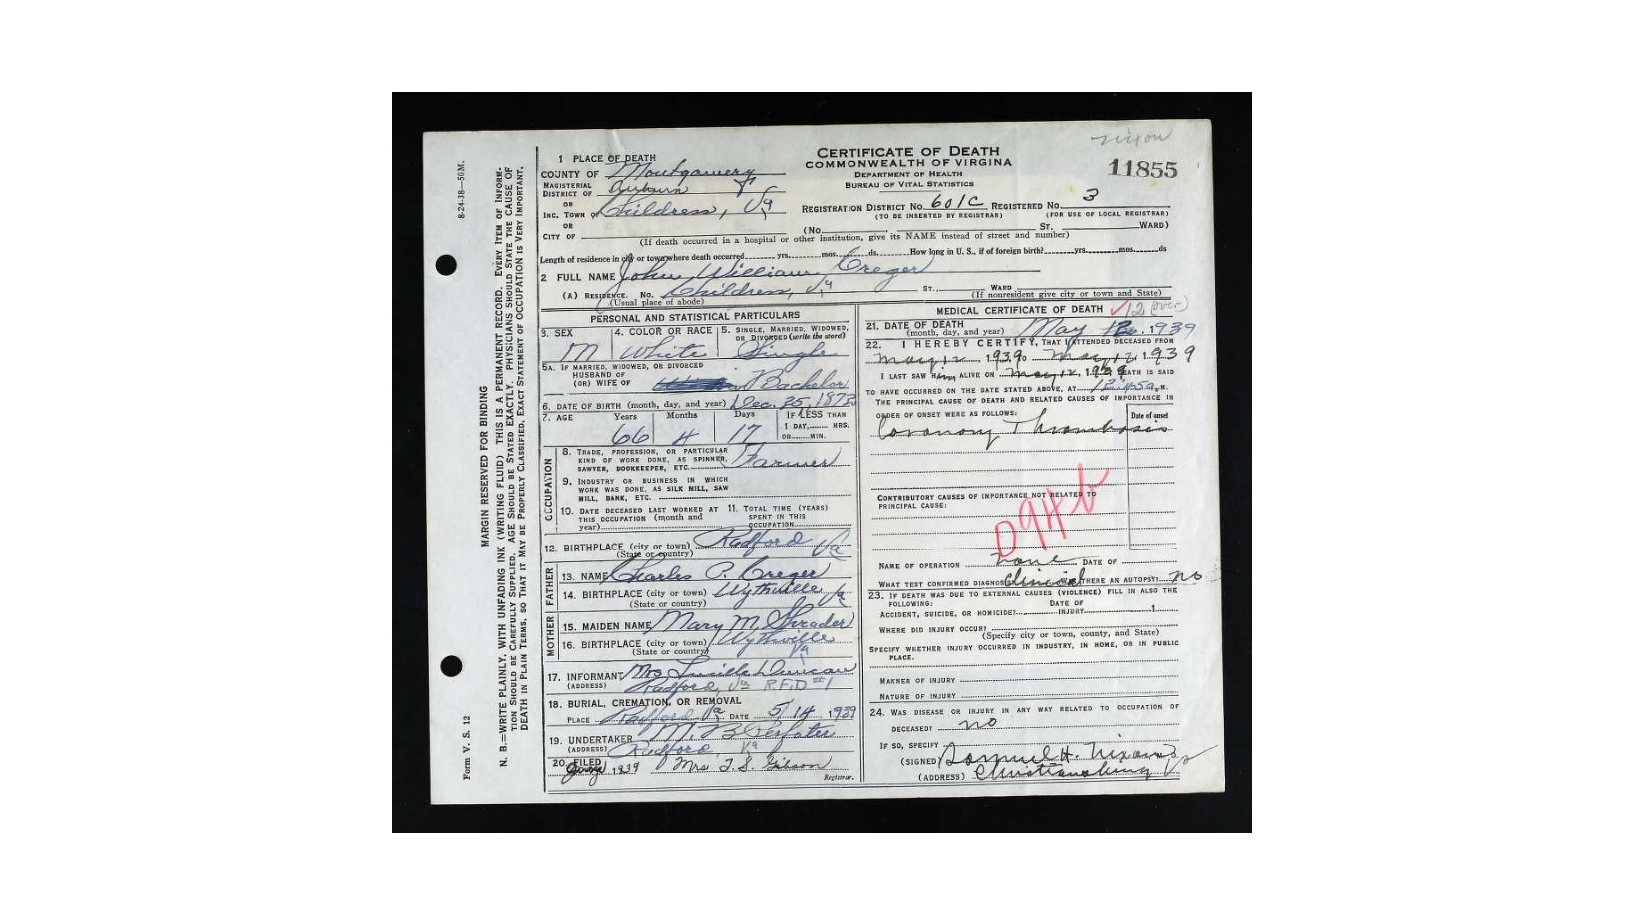 nixon
CERTIFICATE OF DEATH
COMMONWEALTH OF VIRGINIA
DEPARTMENT OF HEALTH
BUREAU OF VITAL STATISTICS
11855
1 PLACE OF DEATH
COUNTY OF Montgomery
MAGISTERIAL DISTRICT OF Auburn
OR
INC. TOWN OF Childress, Va
OR
CITY OF
REGISTRATION DISTRICT NO. 601C REGISTERED NO. 3
(TO BE INSERTED BY REGISTRAR) (FOR USE OF LOCAL REGISTRAR)
(No. ST. WARD)
(If death occurred in a hospital or other institution, give its NAME instead of street and number)
Length of residence in city or town where death occurred yrs. mos. ds. How long in U. S., if of foreign birth? yrs. mos. ds
2 FULL NAME John William Creger
(A) RESIDENCE. No. Childress, Va ST., WARD
(Usual place of abode) (If nonresident give city or town and State)
PERSONAL AND STATISTICAL PARTICULARS
3. SEX M
4. COLOR OR RACE White
5. SINGLE, MARRIED, WIDOWED, OR DIVORCED (write the word) Single
5A. IF MARRIED, WIDOWED, OR DIVORCED
HUSBAND OF
(OR) WIFE OF Bachelor
6. DATE OF BIRTH (month, day, and year) Dec. 25, 1872
7. AGE Years Months Days IF LESS THAN
1 DAY, HRS.
OR MIN.
66 4 17
OCCUPATION
8. TRADE, PROFESSION, OR PARTICULAR
KIND OF WORK DONE, AS SPINNER,
SAWYER, BOOKKEEPER, ETC. Farmer
9. INDUSTRY OR BUSINESS IN WHICH
WORK WAS DONE, AS SILK MILL, SAW
MILL, BANK, ETC.
10. DATE DECEASED LAST WORKED AT
THIS OCCUPATION (month and
year)
11. TOTAL TIME (YEARS)
SPENT IN THIS
OCCUPATION
12. BIRTHPLACE (city or town) Radford Va
(State or country)
FATHER
13. NAME Charles P. Creger
14. BIRTHPLACE (city or town) Wytheville Va
(State or country)
MOTHER
15. MAIDEN NAME Mary M. Shrader
16. BIRTHPLACE (city or town) Wytheville
(State or country) Va
17. INFORMANT Mrs Lucille Duncan
(ADDRESS) Radford, Va R.F.D #1
18. BURIAL, CREMATION, OR REMOVAL
PLACE Radford Va DATE 5/14 1939
19. UNDERTAKER M. B.
(ADDRESS) Radford, Va
20. FILED 1939 Mrs T. S. Gibson
Registrar.
MEDICAL CERTIFICATE OF DEATH
12 (over)
21. DATE OF DEATH
(month, day, and year) May 1939
22. I HEREBY CERTIFY, THAT I ATTENDED DECEASED FROM
May 12, 1939 TO May 12, 1939
I LAST SAW Him ALIVE ON May 12, 1939 DEATH IS SAID
TO HAVE OCCURRED ON THE DATE STATED ABOVE, AT 12:45 a.M.
THE PRINCIPAL CAUSE OF DEATH AND RELATED CAUSES OF IMPORTANCE IN
ORDER OF ONSET WERE AS FOLLOWS:
Date of onset
Coronary Thrombosis
CONTRIBUTORY CAUSES OF IMPORTANCE NOT RELATED TO
PRINCIPAL CAUSE:
D94b
NAME OF OPERATION none DATE OF
WHAT TEST CONFIRMED DIAGNOSIS Clinical WAS THERE AN AUTOPSY? no
23. IF DEATH WAS DUE TO EXTERNAL CAUSES (VIOLENCE) FILL IN ALSO THE
FOLLOWING: DATE OF
ACCIDENT, SUICIDE, OR HOMICIDE? INJURY 1
WHERE DID INJURY OCCUR?
(Specify city or town, county, and State)
SPECIFY WHETHER INJURY OCCURRED IN INDUSTRY, IN HOME, OR IN PUBLIC
PLACE.
MANNER OF INJURY
NATURE OF INJURY
24. WAS DISEASE OR INJURY IN ANY WAY RELATED TO OCCUPATION OF
DECEASED? no
IF SO, SPECIFY
(SIGNED) Samuel H. Nixon
(ADDRESS) Christiansburg
Form V. S. 12
8-24-38—50M.
MARGIN RESERVED FOR BINDING
N. B.—WRITE PLAINLY, WITH UNFADING INK (WRITING FLUID) THIS IS A PERMANENT RECORD. EVERY ITEM OF INFORM-
TION SHOULD BE CAREFULLY SUPPLIED. AGE SHOULD BE STATED EXACTLY. PHYSICIANS SHOULD STATE THE CAUSE OF
DEATH IN PLAIN TERMS, SO THAT IT MAY BE PROPERLY CLASSIFIED. EXACT STATEMENT OF OCCUPATION IS VERY IMPORTANT.